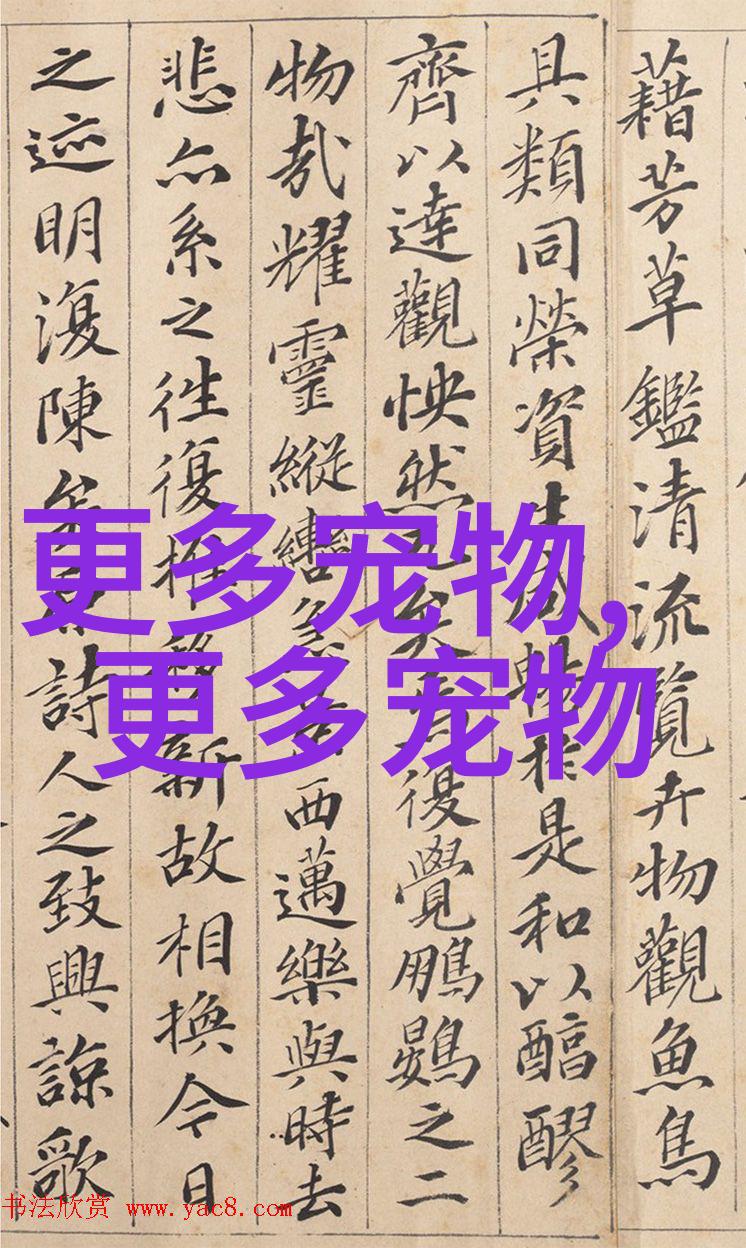 藉芳草鑑清流覽卉物觀魚鳥
具類同榮資生咸暢於是和以醕醪
齊以達觀怏然兀矣焉復覺鵬鷃之二
物哉耀靈縱轡急景西邁樂與時去
悲亦系之往復推移新故相換今日
之迹明復陳矣詩人之致興諒歌
更多宠物,
更多宠物
书法欣赏 www.yac8.com